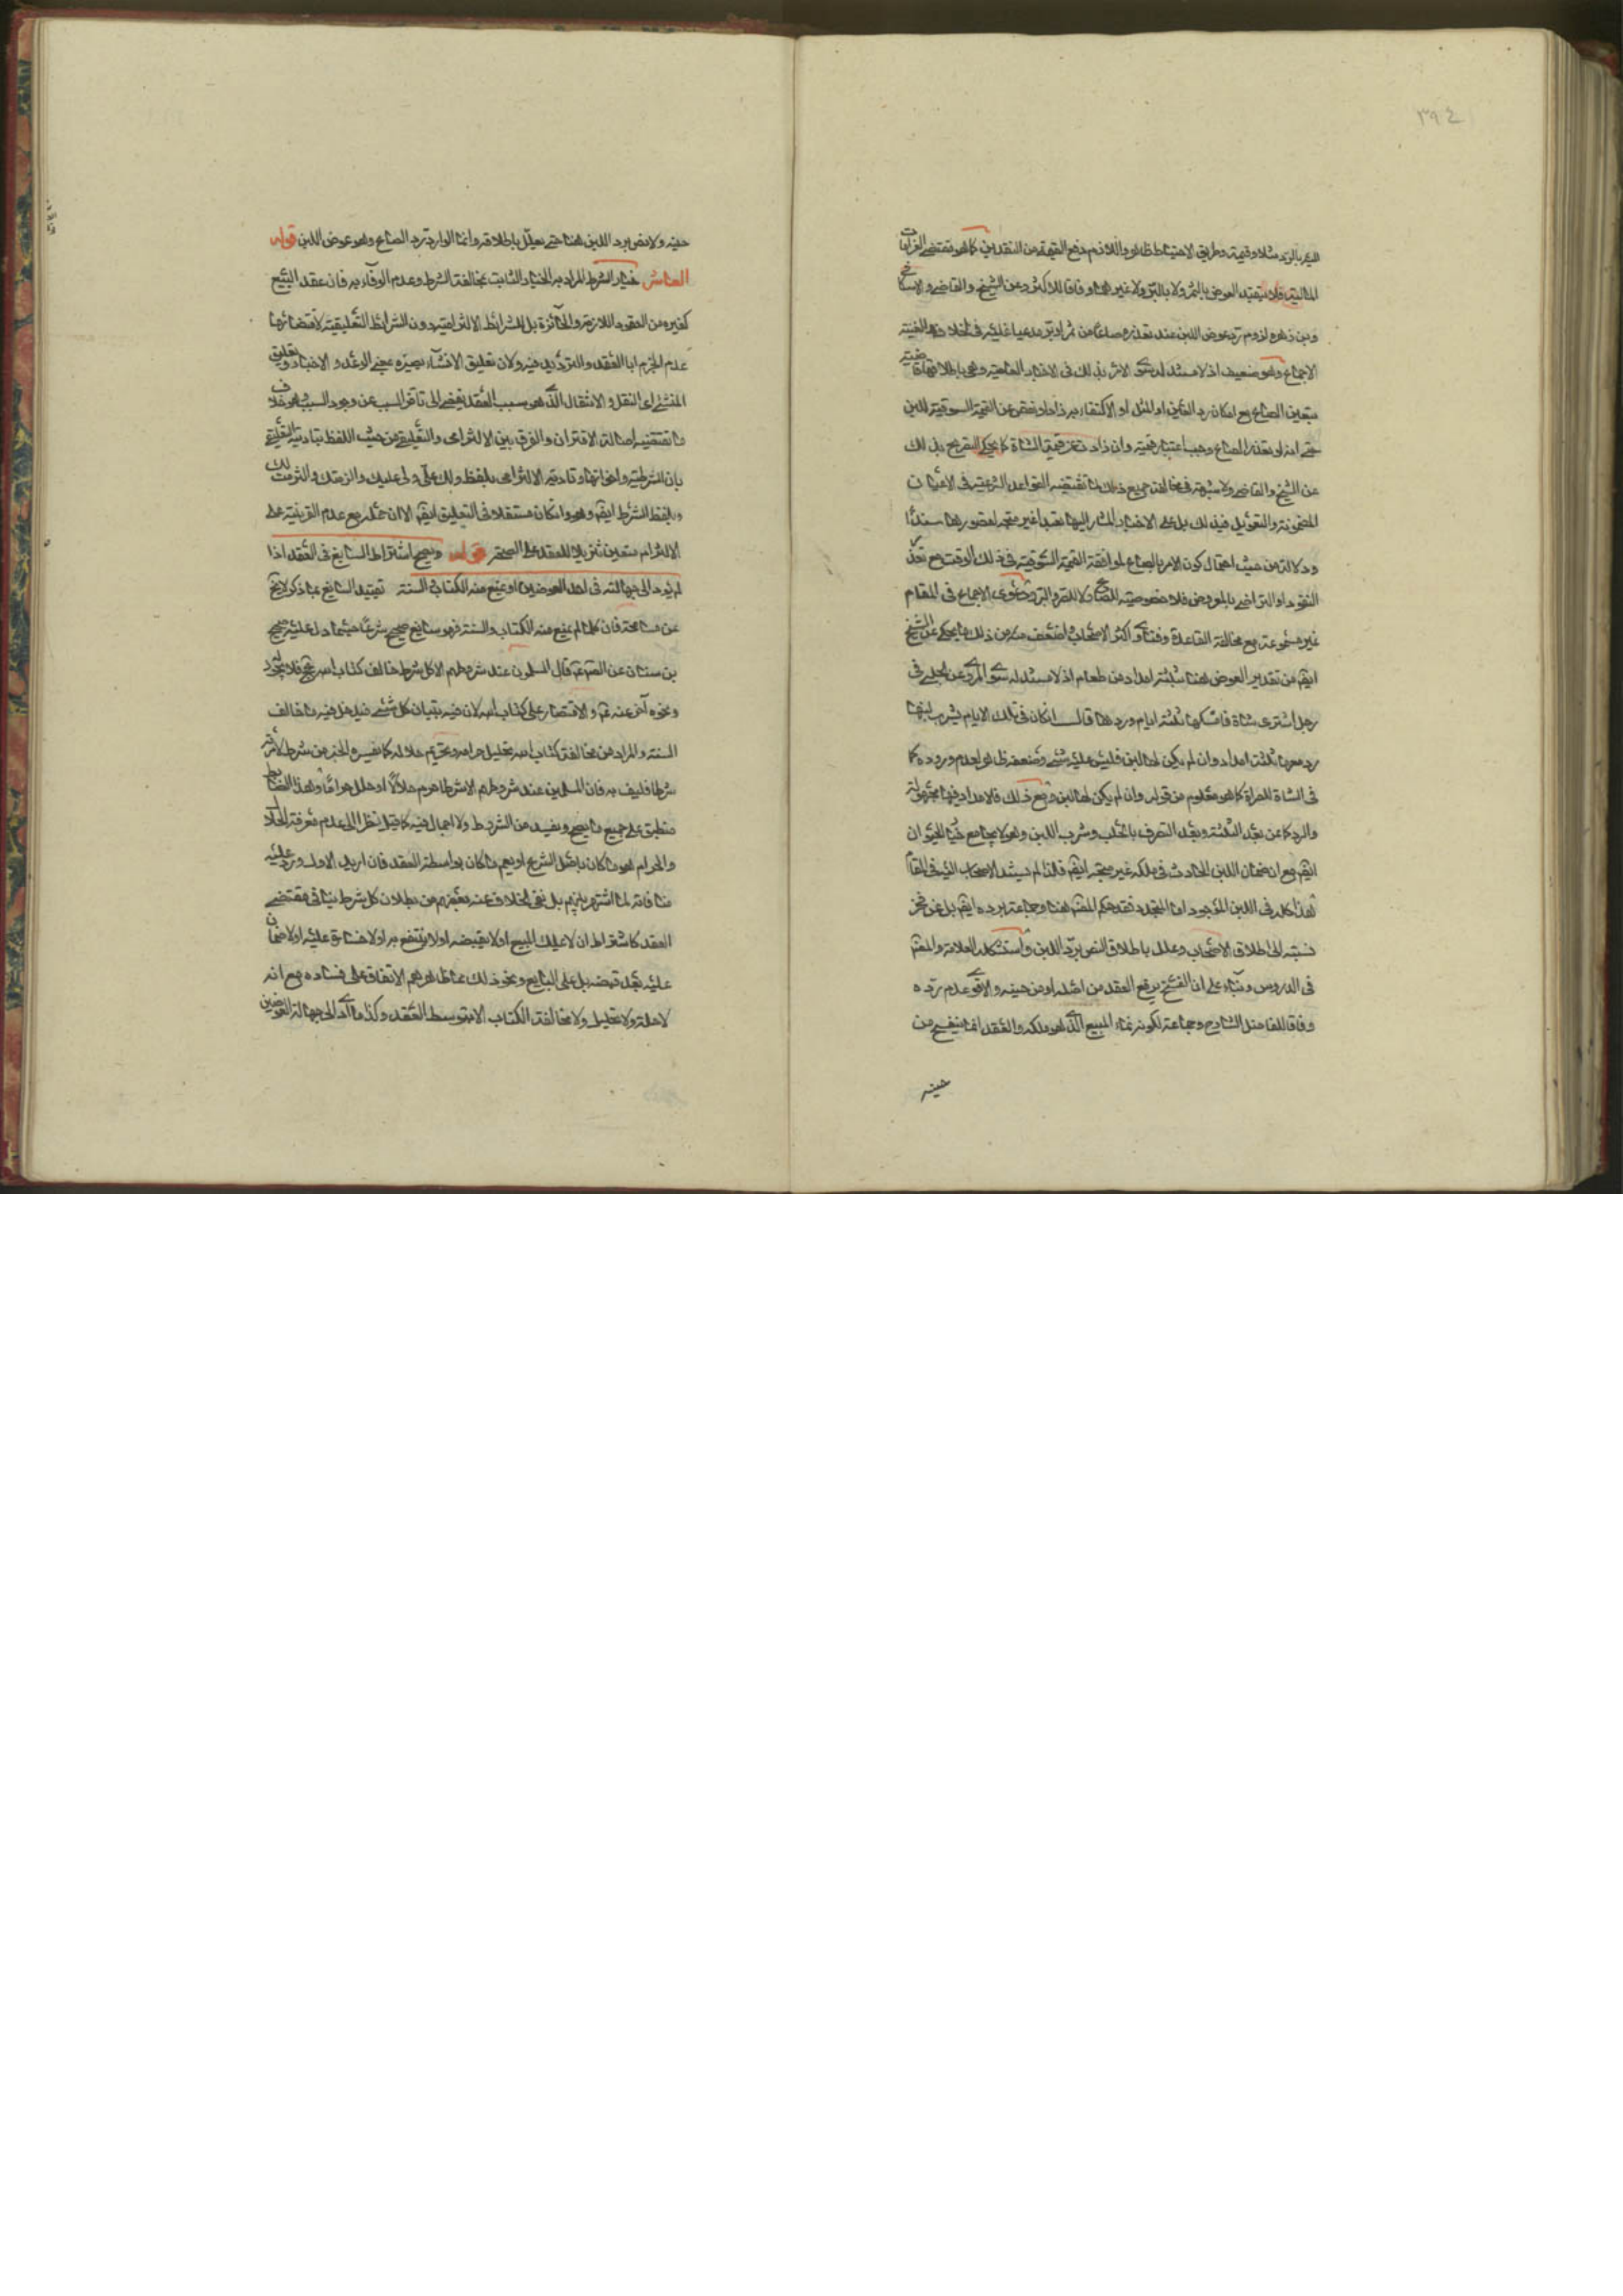 ٣٩٤
للتعبير بالرد مثلا وقيمة وطريق الاحتياط ظاهر واللازم دفع القيمة من النقدين كما هو مقتضى الغرامات
المالية فلا يتقيد العوض بالتمر ولا بالبر ولا غير هما وفاقا للاكثر وعن الشيخ والقاضي والاسكافي
وبن زهره لزوم رد عوض اللبن عند تعذره صاعا من تمر او بر مدعيا عليه في الخلاف والغنية
الاجماع وهو ضعيف اذ لا مستند له سوى الامر بذلك في الاخبار العامية وهي باطلاقها قاضية
بتعين الصاع مع امكان رد العين او المثل او الاكتفاء به زاد او نقص عن القيمة السوقية للبن
حتى انه لو تعذر الصاع وجب اعتبار قيمته وان زادت عن قيمة الشاة كما يحكى التصريح بذلك
عن الشيخ والقاضي ولا شبهة في مخالفة جميع ذلك لما تقتضيه القواعد الشرعية في الاعيان
المضمونة والتعويل في ذلك على الاخبار المشار اليها تعبدا غير متجه لقصورها سندا
ودلالة من حيث احتمال كون الامر بالصاع لموافقة القيمة السوقية في ذلك الوقت مع تعذر
النقود او التراضي بالعوض فلا خصوصية للصاع ولا للتمر والبر ودعوى الاجماع في المقام
غير مسموعة مع مخالفة القاعدة وفتاوى اكثر الاصحاب واضعف منه من ذلك ما يحكى عن الشيخ
ايضا من تقدير العوض هنا بثلثة امداد من طعام اذ لا مستند له سوى المروى عن الحلبي في
رجل اشترى شاة فامسكها ثلثة ايام وردها قال ان كان في تلك الايام يشرب لبنها
رد معها ثلثة امداد وان لم يكن لها لبن فليس عليه شيء وضعفه ظاهر لعدم وروده كما
في الشاة المصراة كما هو معلوم من قوله وان لم يكن لها لبن ومع ذلك فالامداد فيها مجهولة
والرد كما من بعد الثلثة وبعد التصرف بالحلب وشرب اللبن وهو لا يجامع خيار الحيوان
ايضا مع ان ضمان اللبن الحادث في ملكه غير متجه ايضا فلذا لم يستند الاصحاب اليه في المقام
هذا كله في اللبن الموجود اما المتجدد فقد حكم المصنف هنا وجماعة برده ايضا بل عن فخر
نسبته الى اطلاق الاصحاب وعلل باطلاق النص برد اللبن واستشكله العلامة والمصنف
في الدروس وبناء على ان الفسخ يرفع العقد من اصله او من حينه والاقوى عدم رده
وفاقا للفاضل الشارح وجماعة لكونه نماء المبيع الذي هو ملكه والعقد انما ينفسخ من
حينه
حينه ولا نص برد اللبن هنا حتى يعلل باطلاقه وانما الوارد رد الصاع وهو عوض اللبن قوله
العاشر خيار الشرط المراد به الخيار الثابت بمخالفة الشرط وعدم الوفاء به فان عقد البيع
كغيره من العقود اللازمة والجائزة بل الشرائط الالتزامية دون الشرائط التعليقية لاقتضائها
عدم الجزم ابا العقد والترديد فيه ولان تعليق الانشاء يصيره بمعنى الوعد والاخبار وتعليق
المنشئ اى النقل والانتقال الذي هو سبب العقد يفضي الى تاخر المسبب عن وجود السبب وهو خلاف
ما تقتضيه اصالة الاقتران والفرق بين الالتزامى والتعليقى من حيث اللفظ تبادية التعليق
بان الشرطية واخواتها وتادية الالتزامى بلفظ ولك علي ولى عليك والزمتك والتزمت لك
وبلفظ الشرط ايضا وهو وان كان مستقلا في التعليق ايضا الا ان حمله مع عدم القرينة على
الالتزام متعين تنزيلا للعقد على الصحة قوله ويصح اشتراط السايغ في العقد اذا
لم يؤد الى جهالة في احد العوضين او يمنع منه الكتاب والسنة تقييد السايغ بما ذكر لا يخ
عن مسامحة فان كلما لم يمنع منه الكتاب والسنة فهو سايغ صحيح شرعا حيثما دل عليه صحيح
بن سنان عن الصم ع قال المسلمون عند شروطهم الا كل شرط خالف كتاب الله عج فلا يجوز
ونحوه آخر عنه ع والاقتصار على كتاب الله لان فيه تبيان كل شئ فيدخل فيه ما خالف
السنة والمراد من مخالفة كتاب الله تحليل حرامه وتحريم حلاله كما يفسره الخبر من شرط لامرئته
شرطا فليف به فان المسلمين عند شروطهم الا شرطا حرم حلالا او حلل حراما وهذا الضابط
منطبق على جميع ما يصح ويفسد من الشروط ولا اجمال فيه كما قيل نظرا الى عدم معرفة الحلال
والحرام هو ما كان باصل الشرع او يعم ما كان بواسطة العقد فان اريد الاول ورد عليه
منافاته لما اشتهر بينهم بل نفى الخلاف عنه بعضهم من بطلان كل شرط ينافى مقتضى
العقد كاشتراط ان لا يملك المبيع او لا يقبضه او لا ينتفع به او لا خسارة عليه او لا ضمان
عليه بعد قبضه بل على البايع ونحو ذلك مما ظاهرهم الاتفاق على فساده مع انه
لا حلة ولا تحليل ولا مخالفة الكتاب الا بتوسط العقد وكذا ما أدى الى جهالة العوضين